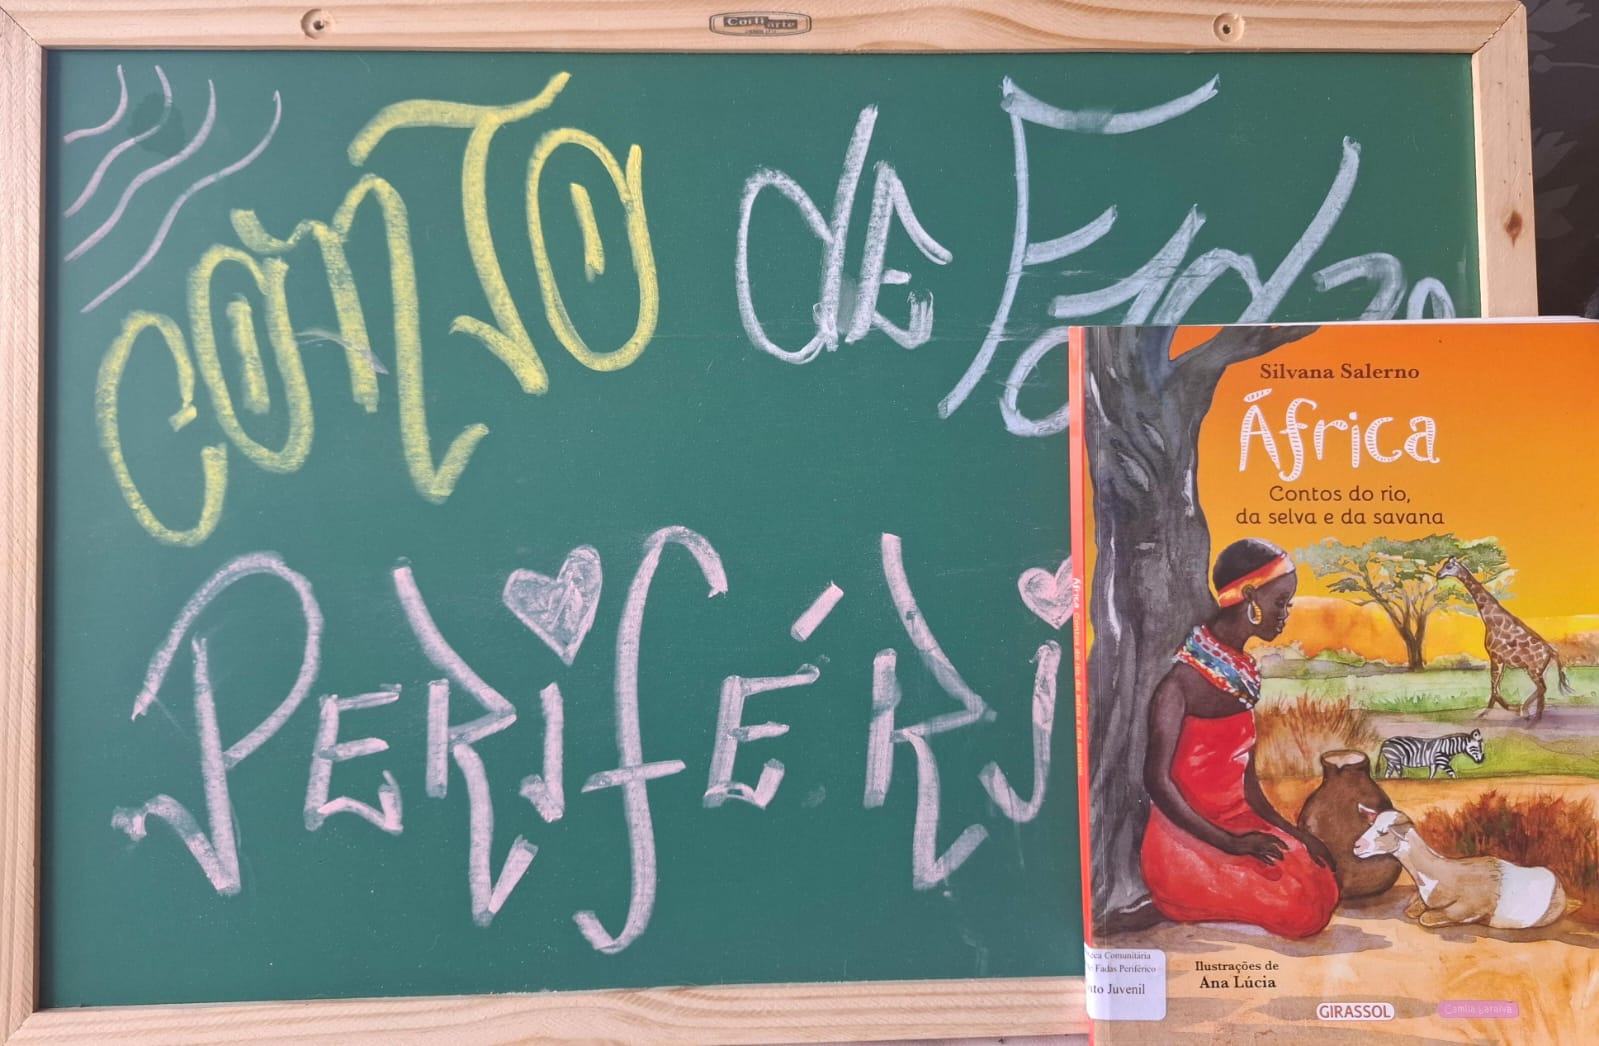 CONTO de Fadas
PERifÉRi
Silvana Salerno
África
Contos do rio,
da selva e da savana
Comunitária
Fadas Periférico
Juvenil
Ilustrações de
Ana Lúcia
GIRASSOL
Camila Saraiva